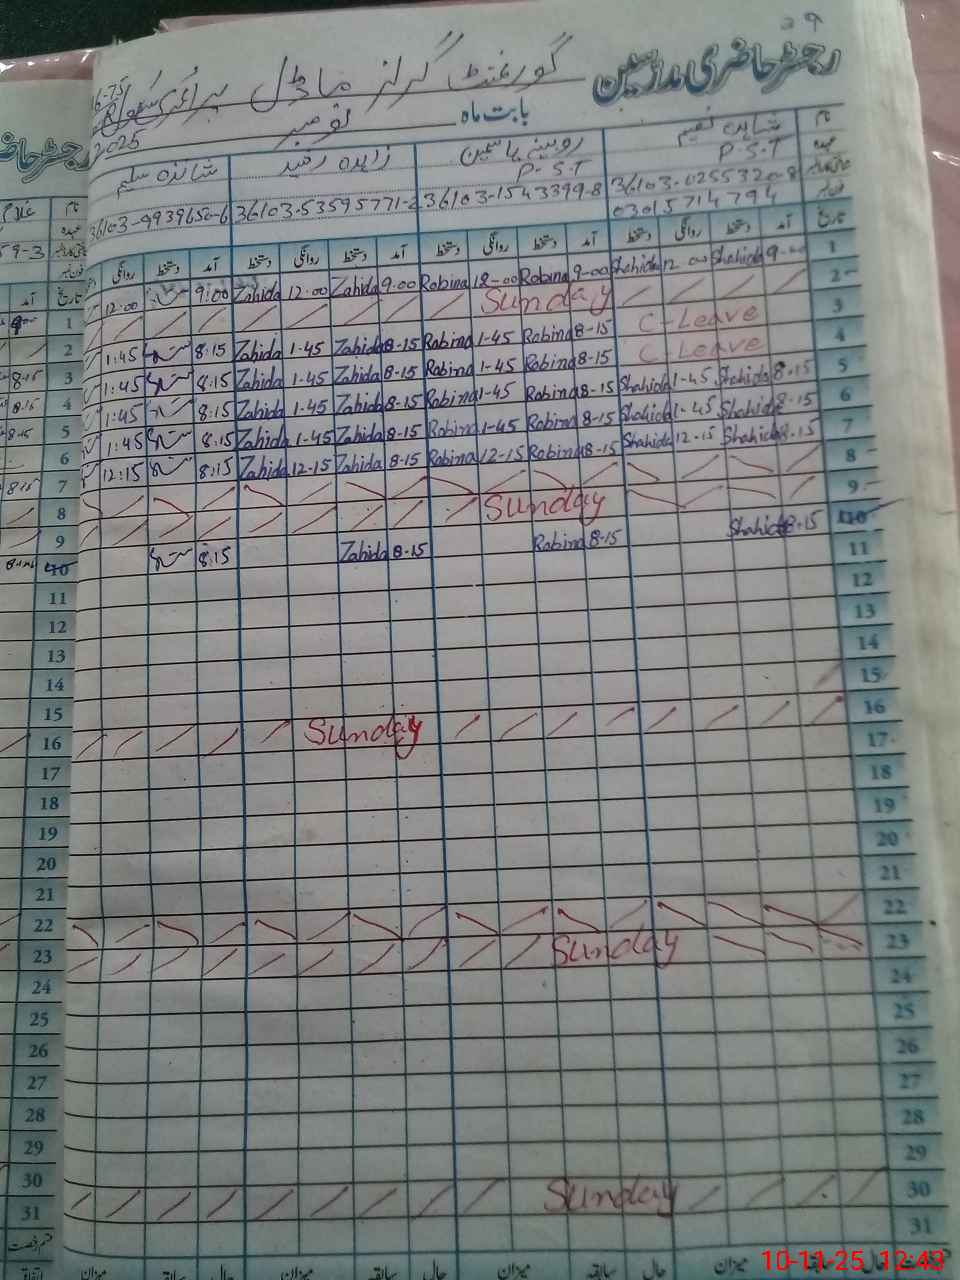 رجسٹر حاضری مدرسین گورنمنٹ گرلز ماڈل پرائمری سکول
بابت ماہ نومبر 2025
نام شاہدہ نعیم روبینہ یاسمین زاہدہ رشید شانزہ سلیم
عہدہ P.S.T P-S-T
36103-0255320-8 36103-1543399-8 36103-5359577-2 36103-9939650-6
03015714794
تاریخ آمد دستخط روانگی دستخط آمد دستخط روانگی دستخط آمد دستخط روانگی دستخط آمد دستخط روانگی
12:00 9:00 Zahida 12:00 Zahida 9.00 Robina 12-00 Robina 9-00 Shahida 12.00 Shahida 9-00 1
Sunday 2
1:45 8:15 Zahida 1-45 Zahida 8-15 Robina 1-45 Robina 8-15 C-Leave 3
1:45 8:15 Zahida 1-45 Zahida 8-15 Robina 1-45 Robina 8-15 C-Leave 4
1:45 8:15 Zahida 1-45 Zahida 8-15 Robina 1-45 Robina 8-15 Shahida 1-45 Shahida 8-15 5
1:45 8:15 Zahida 1-45 Zahida 8-15 Robina 1-45 Robina 8-15 Shahida 1-45 Shahida 8-15 6
12:15 8:15 Zahida 12-15 Zahida 8-15 Robina 12-15 Robina 8-15 Shahida 12-15 Shahida 8-15 7
8
Sunday 9
8:15 Zahida 8-15 Robina 8-15 Shahida 8-15 10
11
12
13
14
15
Sunday 16
17
18
19
20
21
22
Sunday 23
24
25
26
27
28
29
Sunday 30
31
میزان سابقہ حال میزان سابقہ حال میزان سابقہ حال میزان سابقہ حال
10-11-25 12:43